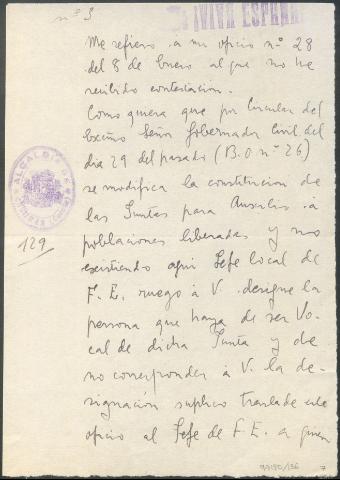 nº 3
¡VIVA ESPAÑA
Me refiero a mi oficio nº 28
del 8 de Enero al que no he
recibido contestacion.
Como quiera que por Circular del
Excmo Señor Gobernador Civil del
dia 29 del pasado (B.O nº 26)
se modifica la constitucion de
las Juntas para Auxilio á
poblaciones liberadas y no
existiendo aqui Jefe local de
F. E. ruego á V. designe la
persona que haya de ser Vo-
cal de dicha Junta y de
no corresponder á V. la de-
signación suplico traslade este
oficio al Jefe de F. E. a quien
ALCALDIA DE
129
99180/136
7